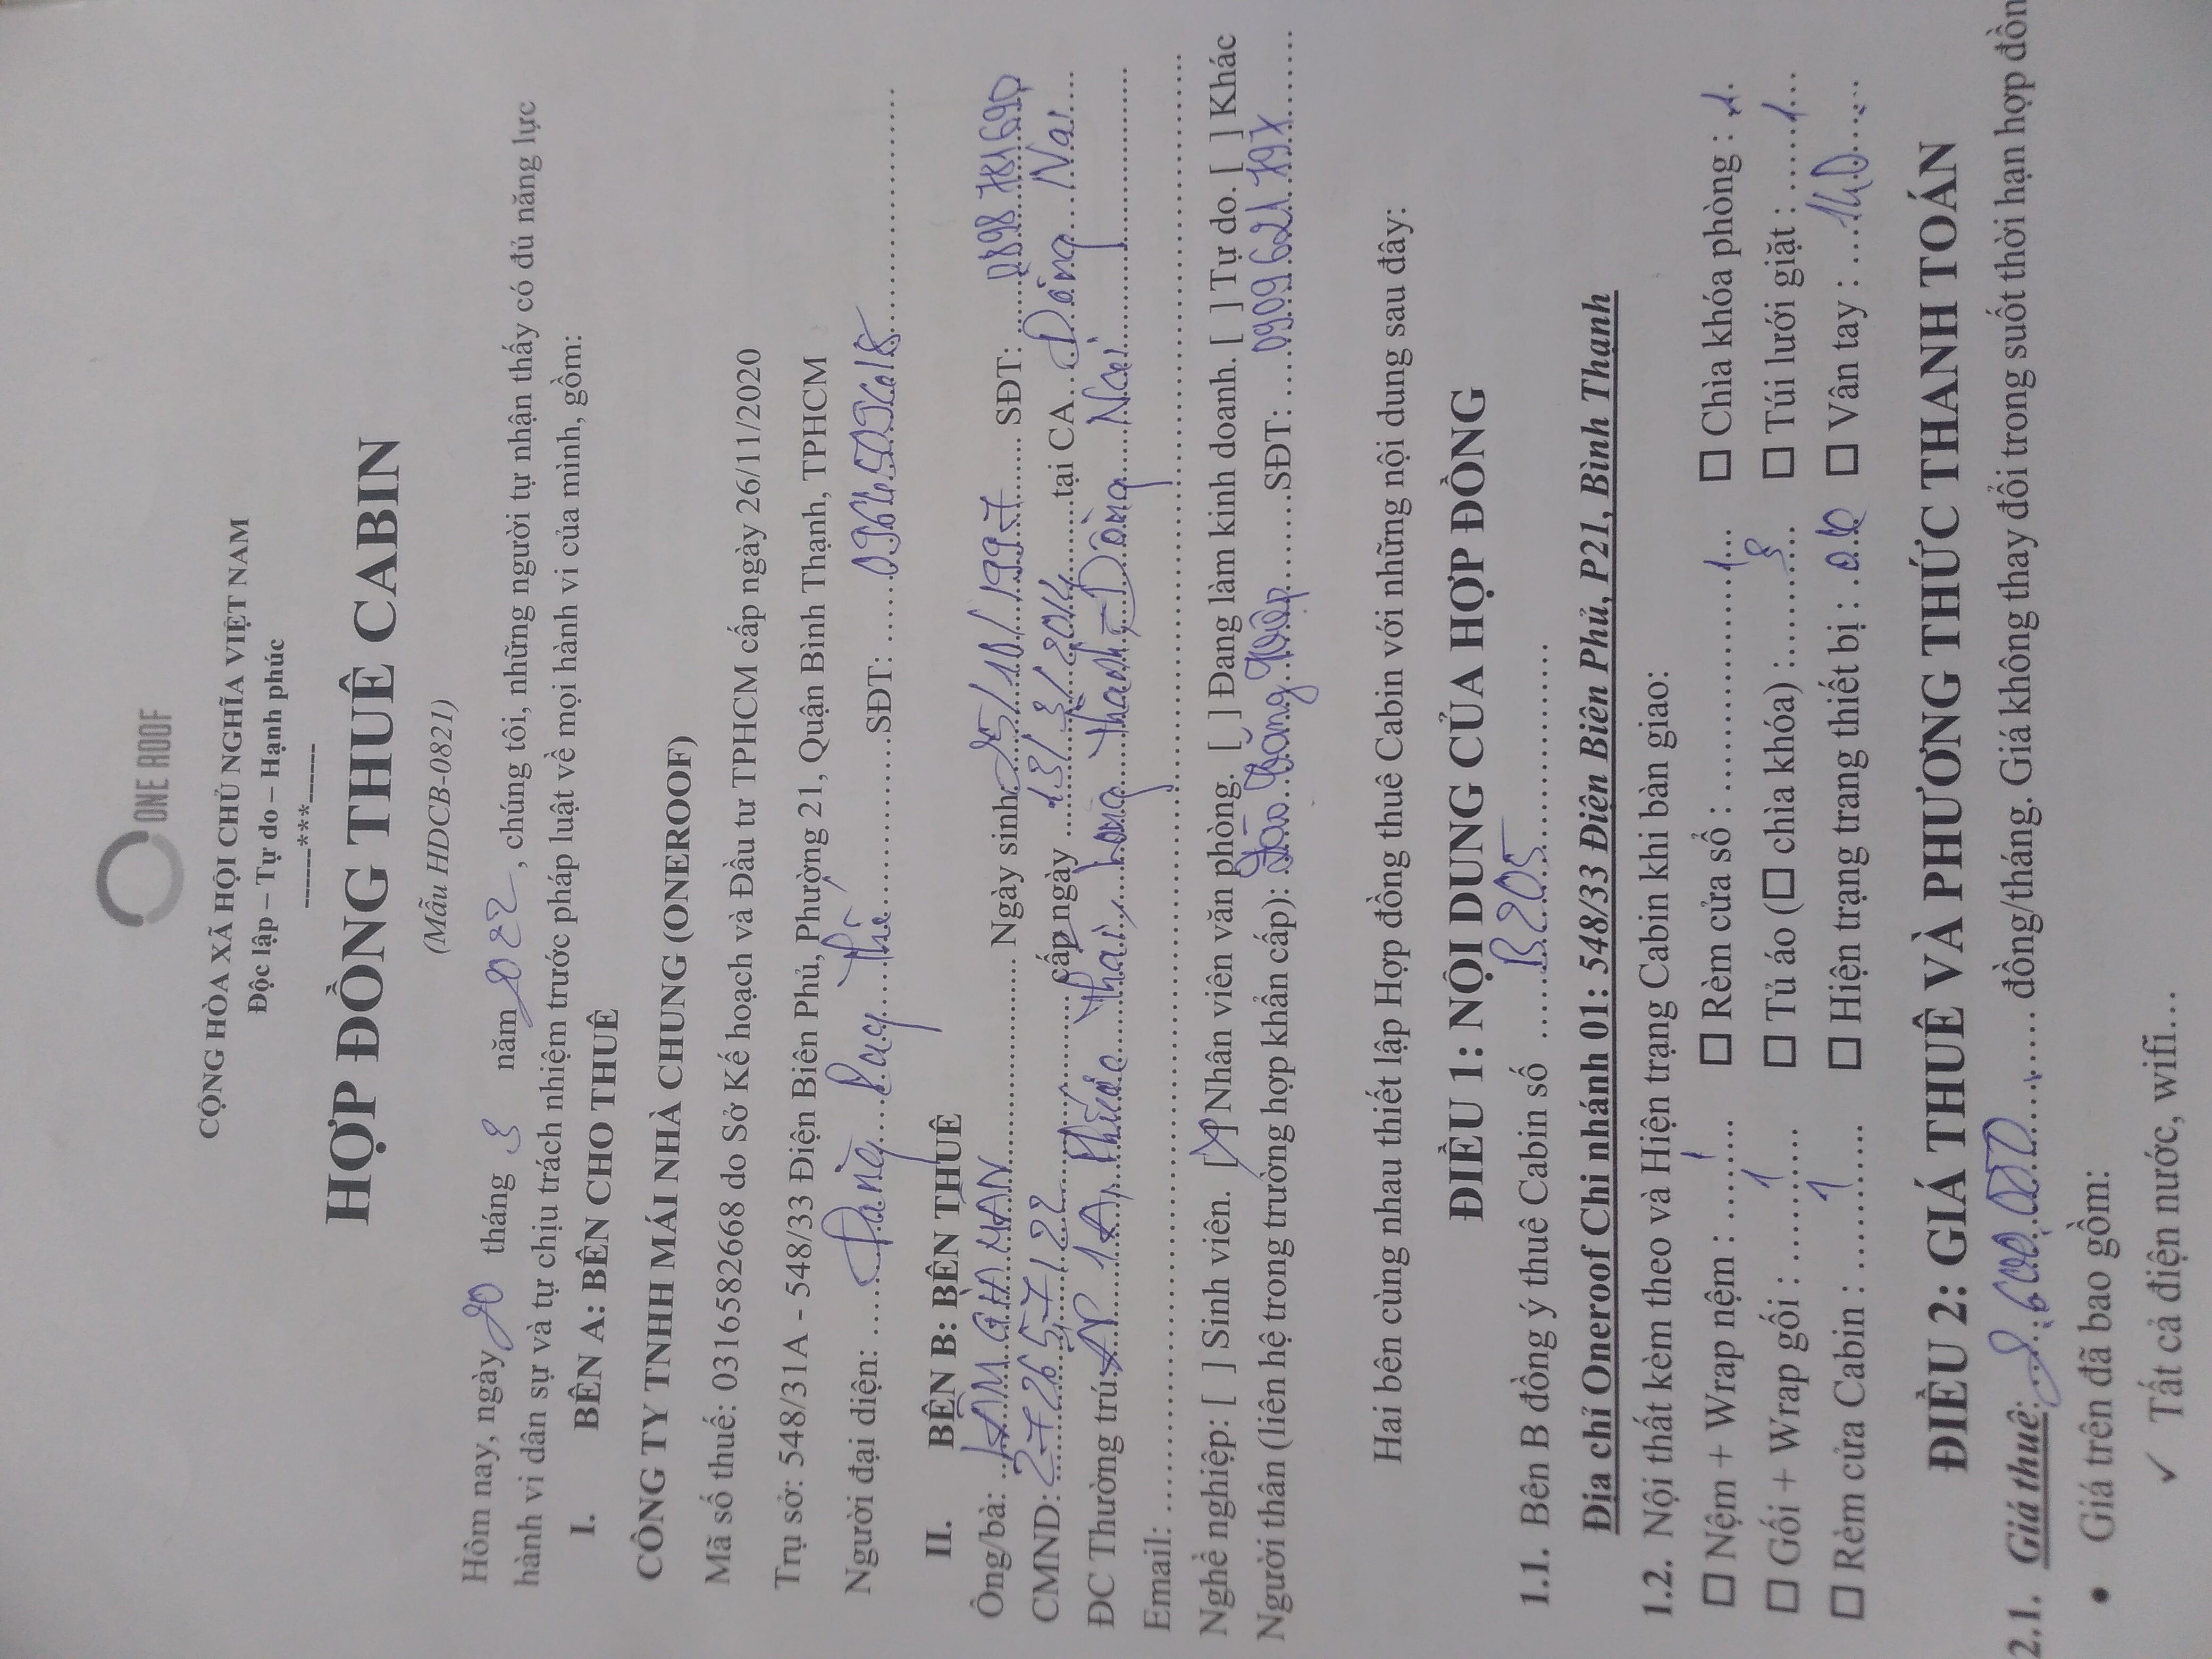 ONE ROOF
CỘNG HÒA XÃ HỘI CHỦ NGHĨA VIỆT NAM
Độc lập – Tự do – Hạnh phúc
------***------
HỢP ĐỒNG THUÊ CABIN
(Mẫu HDCB-0821)
Hôm nay, ngày 20 tháng 3 năm 2022, chúng tôi, những người tự nhận thấy có đủ năng lực
hành vi dân sự và tự chịu trách nhiệm trước pháp luật về mọi hành vi của mình, gồm:
I. BÊN A: BÊN CHO THUÊ
CÔNG TY TNHH MÁI NHÀ CHUNG (ONEROOF)
Mã số thuế: 0316582668 do Sở Kế hoạch và Đầu tư TPHCM cấp ngày 26/11/2020
Trụ sở: 548/31A - 548/33 Điện Biên Phủ, Phường 21, Quận Bình Thạnh, TPHCM
Người đại diện: ... SĐT: ...
II. BÊN B: BÊN THUÊ
Ông/bà: LÂM GIA MAN Ngày sinh 25/10/1997 SĐT: 0898781690
CMND: 272657122 cấp ngày 13/3/2014 tại CA Đồng Nai
ĐC Thường trú: ẤP 1A, Phước Thái, Long Thành, Đồng Nai
Email: ...
Nghề nghiệp: [ ] Sinh viên. [X] Nhân viên văn phòng. [ ] Đang làm kinh doanh. [ ] Tự do. [ ] Khác
Người thân (liên hệ trong trường hợp khẩn cấp): SĐT: ...
Hai bên cùng nhau thiết lập Hợp đồng thuê Cabin với những nội dung sau đây:
ĐIỀU 1: NỘI DUNG CỦA HỢP ĐỒNG
1.1. Bên B đồng ý thuê Cabin số B205
Địa chỉ Oneroof Chi nhánh 01: 548/33 Điện Biên Phủ, P21, Bình Thạnh
1.2. Nội thất kèm theo và Hiện trạng Cabin khi bàn giao:
☐ Nệm + Wrap nệm : 1 ☐ Rèm cửa sổ : 1 ☐ Chìa khóa phòng : 1
☐ Gối + Wrap gối : 1 ☐ Tủ áo (☐ chìa khóa) : ☐ Túi lưới giặt : 1
☐ Rèm cửa Cabin : 1 ☐ Hiện trạng trang thiết bị : ok ☐ Vân tay : 140
ĐIỀU 2: GIÁ THUÊ VÀ PHƯƠNG THỨC THANH TOÁN
2.1. Giá thuê: 2.600.000 đồng/tháng. Giá không thay đổi trong suốt thời hạn hợp đồn
• Giá trên đã bao gồm:
✓ Tất cả điện nước, wifi...